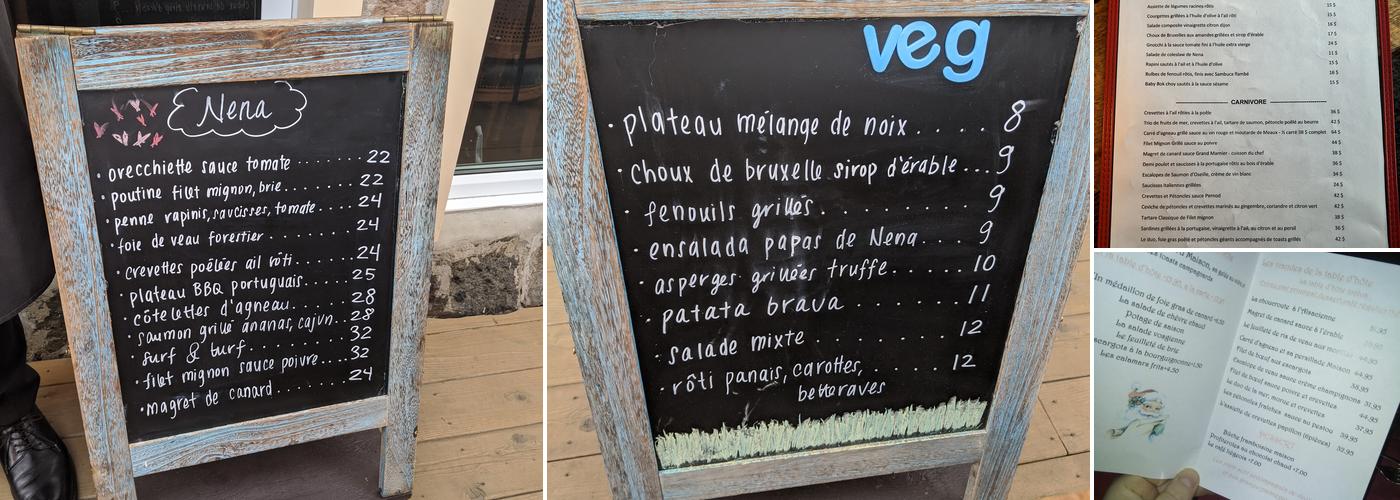 Nena
• orecchiette sauce tomate ........ 22
poutine filet mignon, brie ....... 22
• penne rapinis, saucisses, tomate .... 24
• foie de veau forestier ........ 24
• crevettes poêlées ail rôti ...... 24
• plateau BBQ portuguais ..... 25
• côtelettes d'agneau ....... 28
• saumon grillé ananas, cajun .. 28
• surf & turf ......... 32
• filet mignon sauce poivre .... 32
• magret de canard ....... 24
veg
• plateau mélange de noix .... 8
• choux de bruxelle sirop d'érable ... 9
• fenouils grillés ........ 9
• ensalada papas de Nena ... 9
• asperges grillées truffe ..... 10
• patata brava ....... 11
• salade mixte ....... 12
• rôti panais, carottes, .... 12
betteraves
Assiette de légumes racines rôtis 15 $
Courgettes grillées à l'huile d'olive à l'ail rôti 15 $
Salade composite vinaigrette citron dijon 16 $
Choux de Bruxelles aux amandes grillées et sirop d'érable 17 $
Gnocchi à la sauce tomate fini à l'huile extra vierge 24 $
Salade de coleslaw de Nena 11 $
Rapini sautés à l'ail et à l'huile d'olive 15 $
Bulbes de fenouil rôtis, finis avec Sambuca flambé 16 $
Baby Bok choy sautés à la sauce sésame 15 $
CARNIVORE
Crevettes à l'ail rôties à la poêle 36 $
Trio de fruits de mer, crevettes à l'ail, tartare de saumon, pétoncle poêlé au beurre 42 $
Carré d'agneau grillé sauce au vin rouge et moutarde de Meaux - ½ carré 38 $ complet 64 $
Filet Mignon Grillé sauce au poivre 44 $
Magret de canard sauce Grand Marnier - cuisson du chef 38 $
Demi poulet et saucisses à la portugaise rôtis au bois d'érable 36 $
Escalopes de Saumon d'Oseille, crème de vin blanc 34 $
Saucisses Italiennes grillées 24 $
Crevettes et Pétoncles sauce Pernod 42 $
Ceviche de pétoncles et crevettes marinés au gingembre, coriandre et citron vert 42 $
Tartare Classique de Filet mignon 38 $
Sardines grillées à la portugaise, vinaigrette à l'ail, au citron et au persil 36 $
Le duo, foie gras poêlé et pétoncles géants accompagnés de toasts grillés 42 $
Maison,
toasts campagnards
médaillon de foie gras de canard
La salade de chèvre chaud
Potage de saison
La salade vosgienne
Le feuilleté de brie
escargots à la bourguignonne
Les calamars frits +4.50
La choucroute à l'Alsacienne
Magret de canard sauce à l'érable
Le feuilleté de ris de veau aux
Carré d'agneau et sa persillade Maison 44.95
Filet de bœuf aux escargot 38.95
Escalope de veau sauce crème champignons 31.95
Filet de bœuf sauce poivre et crevettes 44.95
Le duo de la mer, morue et crevettes 37.95
Les pétoncles fraîches sauce au pesto 39.95
L'assiette de crevettes papillon
Bûche framboisine maison
Profiteroles au chocolat chaud +7.00
Le café liégeois +7.00